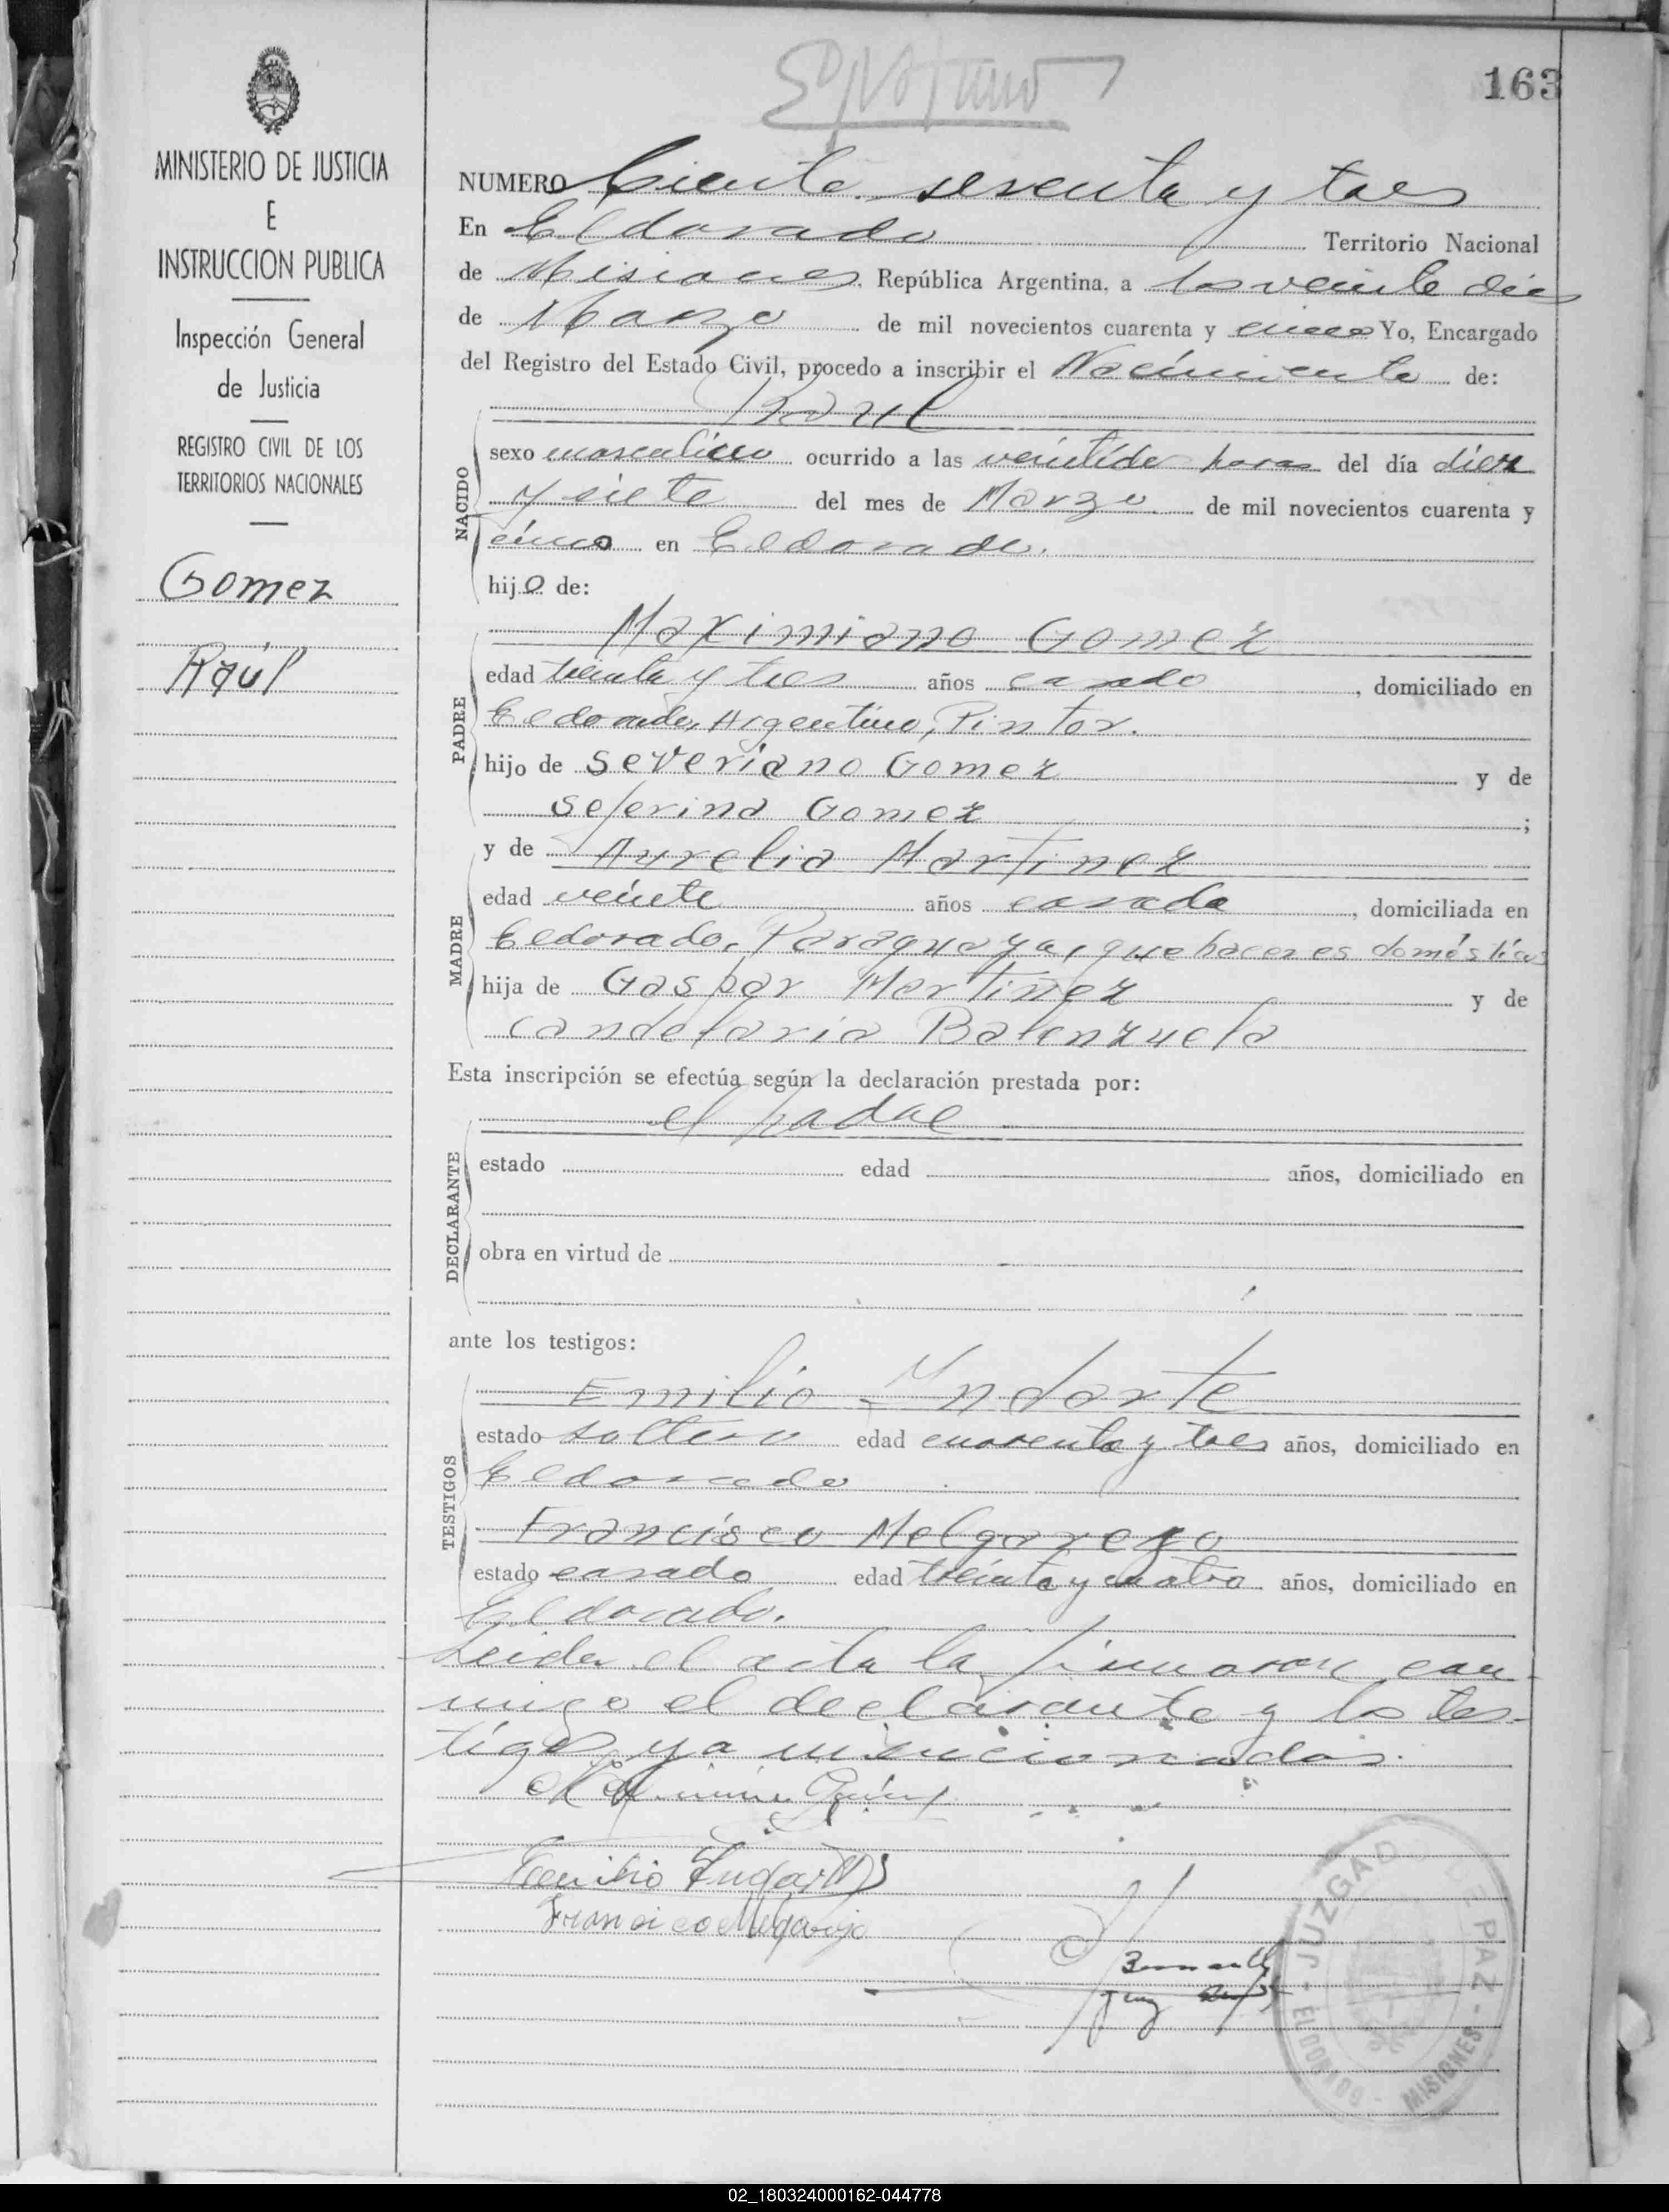 163
MINISTERIO DE JUSTICIA
E
INSTRUCCION PUBLICA
Inspección General
de Justicia
REGISTRO CIVIL DE LOS
TERRITORIOS NACIONALES
Gomez
Raúl
NUMERO Ciento sesenta y tres
En Eldorado Territorio Nacional
de Misiones, República Argentina, a los veinte dias
de Marzo de mil novecientos cuarenta y cinco Yo, Encargado
del Registro del Estado Civil, procedo a inscribir el Nacimiento de:
Raul
NACIDO
sexo masculino ocurrido a las veintidos horas del día diez
y siete del mes de Marzo de mil novecientos cuarenta y
cinco en Eldorado.
hijo de:
Maximiano Gomez
PADRE
edad treinta y tres años casado, domiciliado en
Eldorado, Argentino, Pintor.
hijo de Severiano Gomez y de
Seferina Gomez;
y de Aurelia Martinez
MADRE
edad veinte años casada, domiciliada en
Eldorado, Paraguaya, quehaceres domésticos
hija de Gaspar Martinez y de
Candelaria Balenzuela
Esta inscripción se efectúa según la declaración prestada por:
el padre
DECLARANTE
estado edad años, domiciliado en
obra en virtud de
ante los testigos:
Emilio Yndarte
TESTIGOS
estado soltero edad cuarenta y tres años, domiciliado en
Eldorado
Francisco Melgarejo
estado casado edad treinta y cuatro años, domiciliado en
Eldorado.
Leida el acta la firmaron con-
migo el declarante y los tes-
tigos ya mencionados.
Francisco Melgarejo
JUZGADO DE PAZ - MISIONES - ELDORADO -
02_180324000162-044778